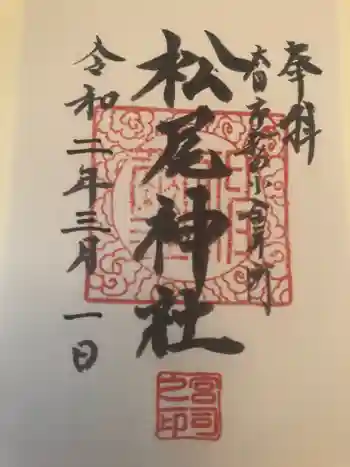 奉拝
松尾神社
令和二年三月一日
宮司之印